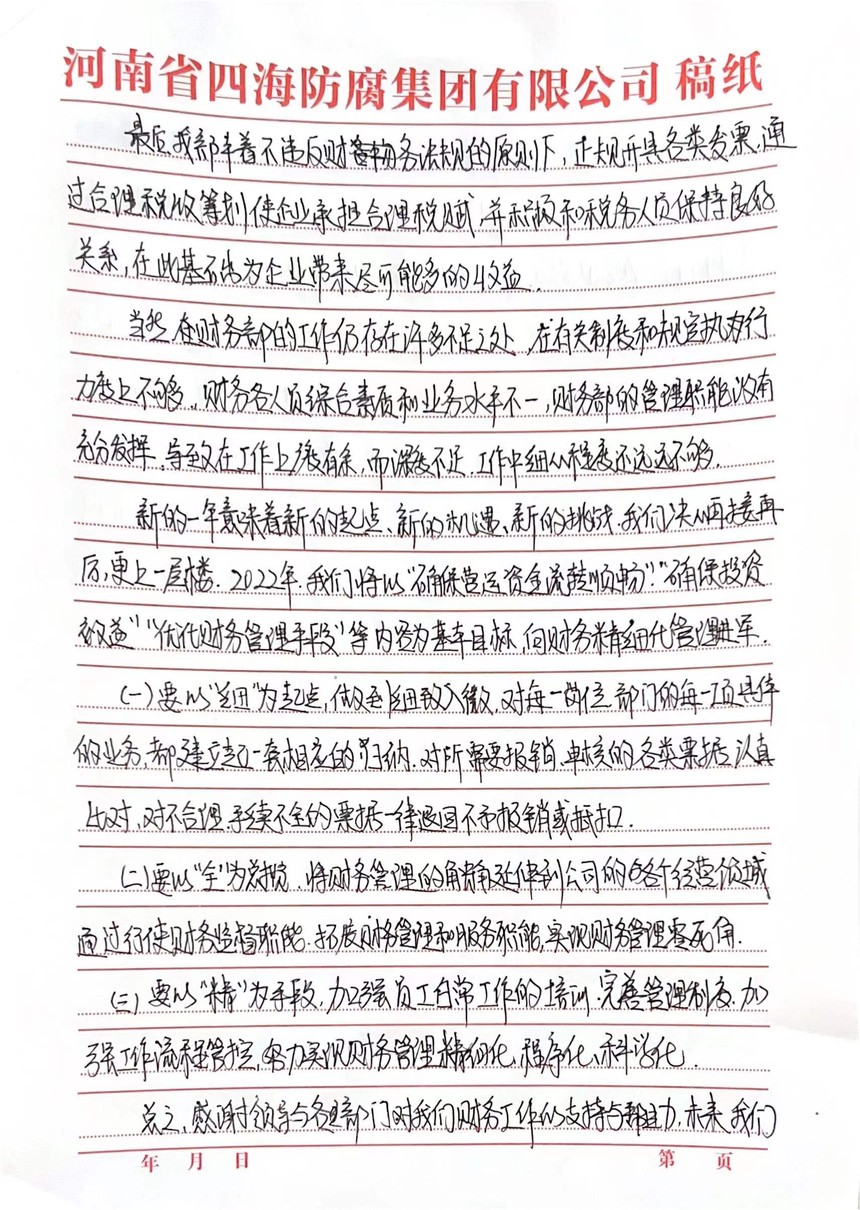 河南省四海防腐集团有限公司 稿纸
最后我部本着不违反财务法规的原则下,正规开具各类发票,通
过合理税收筹划使企业承担合理税赋,并积极和税务人员保持良好
关系,在此基础为企业带来尽可能多的收益.
当然,在财务部的工作仍存在许多不足之处,在有关制度和规定执行
力度上不够,财务各人员综合素质和业务水平不一,财务部的管理职能没有
充分发挥,导致在工作上广度有余,而深度不足,工作中细化程度还远远不够.
新的一年意味着新的起点、新的机遇、新的挑战,我们决心再接再
厉,更上一层楼.2022年,我们将以“确保营运资金流转顺畅”“确保投资
效益”“优化财务管理手段”等内容为基本目标,向财务精细化管理进军.
(一)要以“细”为起点,做到细致入微,对每一岗位、部门的每一项具体
的业务,都建立起一套相应的归纳.对所需要报销、审核的各类票据,认真
比对,对不合理、手续不全的票据一律退回不予报销或抵扣.
(二)要以“全”为总揽,将财务管理的触角延伸到公司的各个经营领域
通过行使财务监督职能,拓展财务管理和服务职能,实现财务管理零死角.
(三)要以“精”为手段,加强员工日常工作的培训,完善管理制度,加
强工作流程管控,努力实现财务管理精细化、程序化、科学化.
总之,感谢领导与各部门对我们财务工作的支持与帮助,未来,我们
年 月 日 第 页